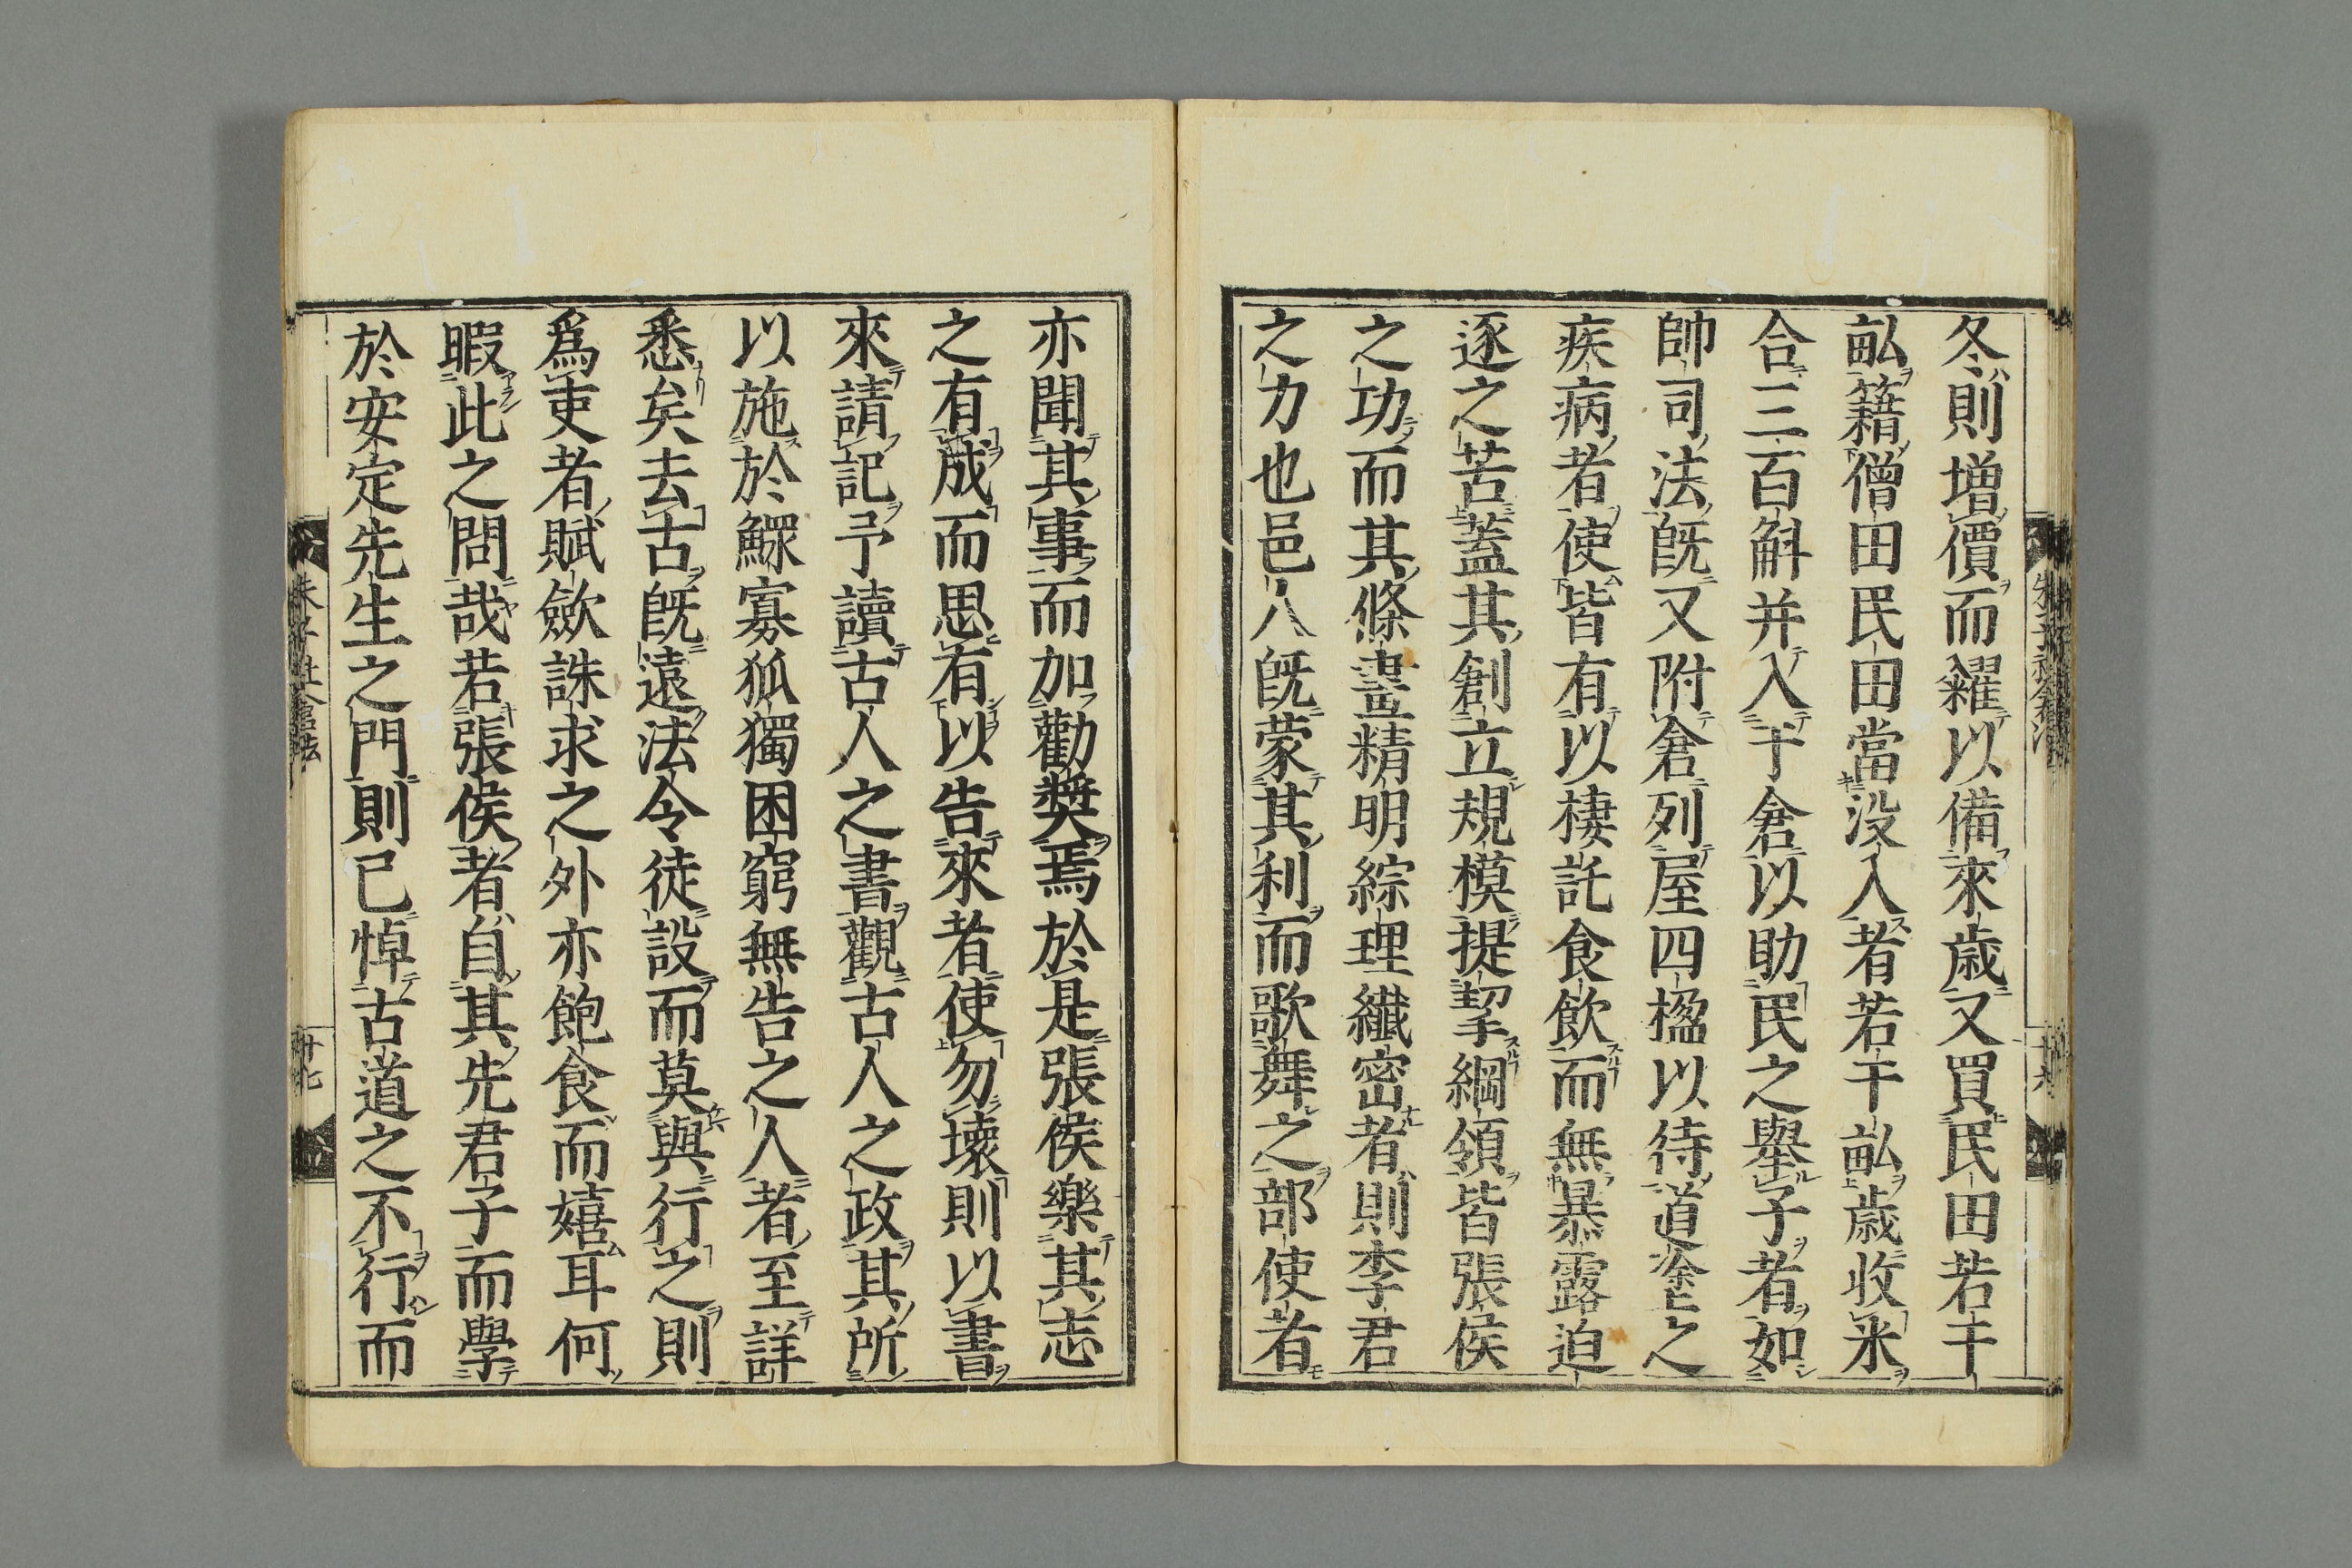 冬則増價而糴以備來歳又買民田若干
畆籍僧田民田當没入者若干畆歳收米
合三百斛并入于倉以助民之舉子者如
帥司法既又附倉列屋四楹以待道塗之
疾病者使皆有以棲託食飲而無暴露迫
逐之苦蓋其創立規模提挈綱領皆張侯
之功而其條畫精明綜理纖密者則李君
之力也邑人既蒙其利而歌舞之部使者
亦聞其事而加勸奬焉於是張侯樂其志
之有成而思有以告來者使勿壞則以書
來請記予讀古人之書觀古人之政其所
以施於鰥寡狐獨困窮無告之人者至詳
悉矣去古既遠法令徒設而莫與行之則
爲吏者賦歛誅求之外亦飽食而嬉耳何
暇此之問哉若張侯者自其先君子而學
於安定先生之門則已悼古道之不行而
朱子社倉法
十七